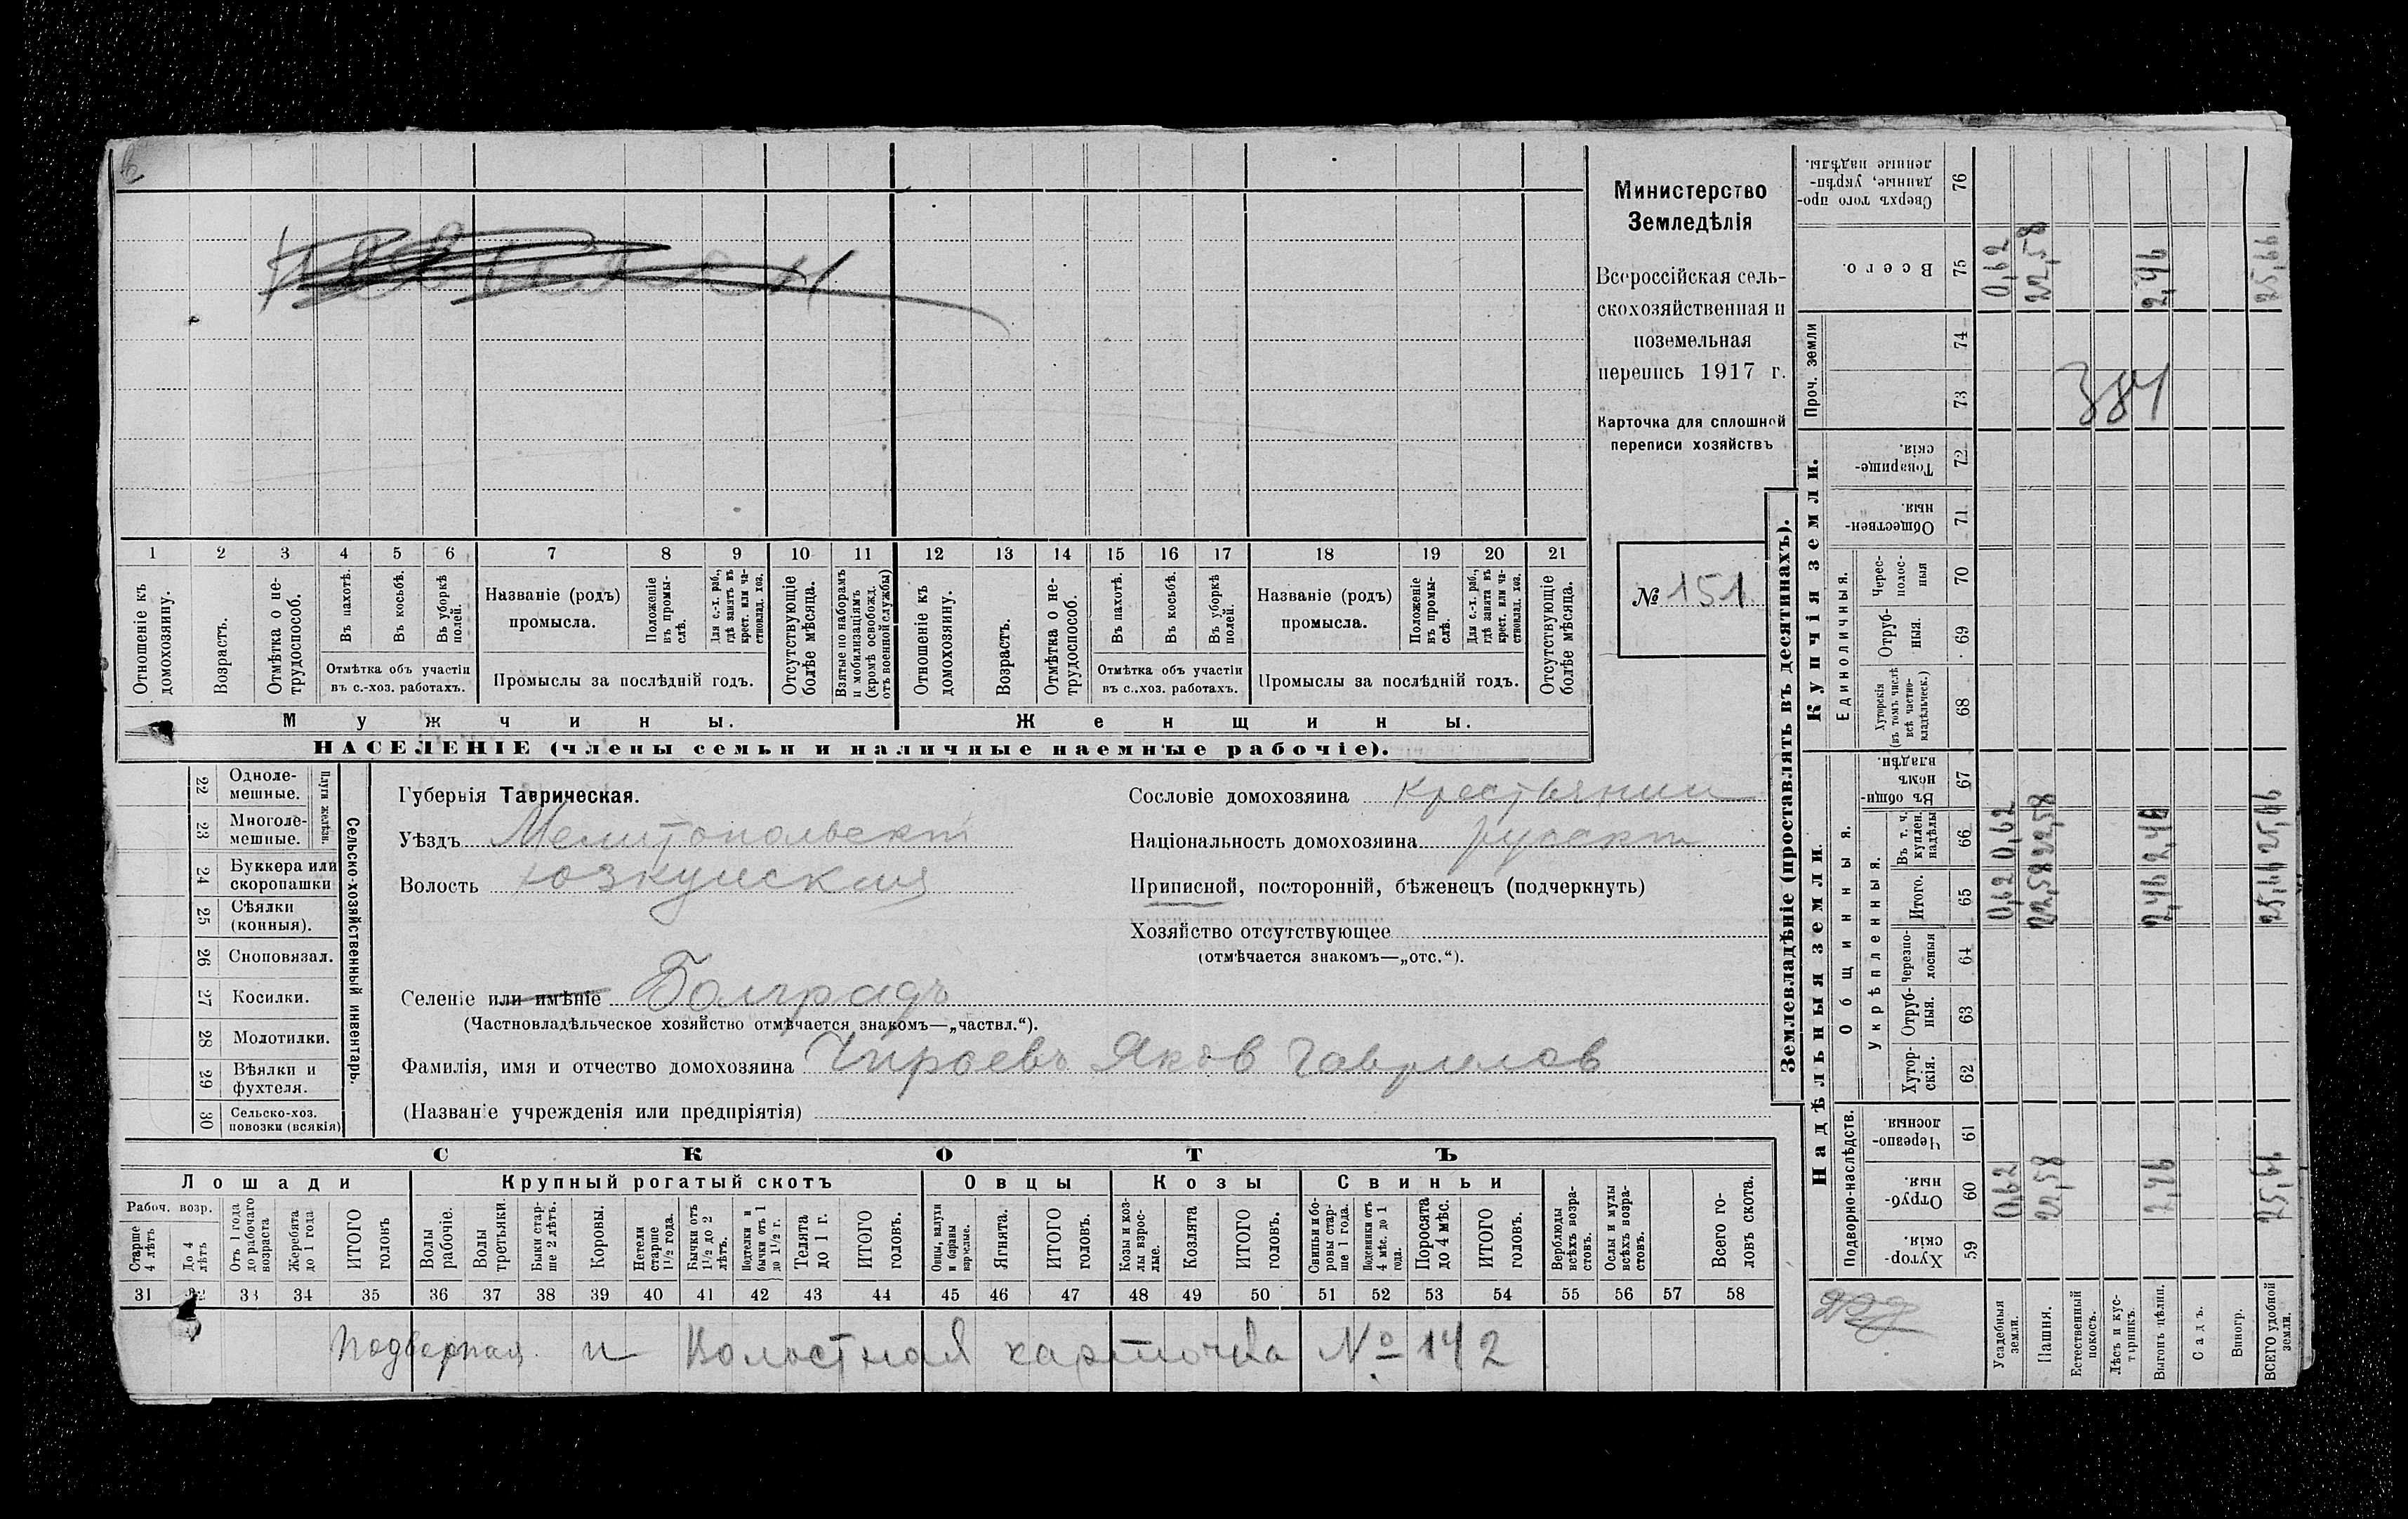 Министерство
Земледѣлія
Всероссійская сель-
скохозяйственная и
поземельная
перепись 1917 г.
Карточка для сплошной
переписи хозяйствъ
№ 151
1 2 3 4 5 6 7 8 9 10 11 12 13 14 15 16 17 18 19 20 21
Отношеніе къ домохозяину.
Возрастъ.
Отмѣтка о не-трудоспособ.
Въ пахотѣ.
Въ косьбѣ.
Въ уборкѣ полей.
Отмѣтка объ участіи
въ с.-хоз. работахъ.
Названіе (родъ)
промысла.
Положеніе въ промы-слѣ.
Для с.-х. раб., гдѣ занятъ въ крест. или ча-стновлад. хоз.
Промыслы за послѣдній годъ.
Отсутствующіе болѣе мѣсяца.
Взятые по наборамъ и мобилизаціямъ (кромѣ освобожд. отъ военной службы)
Отношеніе къ домохозяину.
Возрастъ.
Отмѣтка о не-трудоспособ.
Въ пахотѣ.
Въ косьбѣ.
Въ уборкѣ полей.
Отмѣтка объ участіи
въ с.-хоз. работахъ.
Названіе (родъ)
промысла.
Положеніе въ промы-слѣ.
Для с.-х. раб., гдѣ занята въ крест. или ча-стновлад. хоз.
Промыслы за послѣдній годъ.
Отсутствующіе болѣе мѣсяца.
Мужчины.
Женщины.
НАСЕЛЕНІЕ (члены семьи и наличные наемные рабочіе).
22 Одноле-мешные.
23 Многоле-мешные.
Плуги желѣзн.
24 Буккера или скоропашки
25 Сѣялки (конныя).
26 Сноповязал.
27 Косилки.
28 Молотилки.
29 Вѣялки и фухтеля.
30 Сельско-хоз. повозки (всякія)
Сельско-хозяйственный инвентарь.
Губернія Таврическая.
Уѣздъ Мелитопольскій
Волость Юзкуйская
Селеніе или имѣніе Болградъ
(Частновладѣльческое хозяйство отмѣчается знакомъ—„частвл.“).
Фамилія, имя и отчество домохозяина Чироевъ Яковъ Гаврилов
(Названіе учрежденія или предпріятія)
Сословіе домохозяина крестьянин
Національность домохозяина русскій
Приписной, посторонній, бѣженецъ (подчеркнуть)
Хозяйство отсутствующее
(отмѣчается знакомъ—„отс.“).
СКОТЪ
Лошади
Крупный рогатый скотъ
Овцы
Козы
Свиньи
Рабоч. возр.
Старше 4 лѣтъ
До 4 лѣтъ
Отъ 1 года до рабочаго возраста
Жеребята до 1 года
ИТОГО головъ
Волы рабочіе.
Волы третьяки.
Быки стар-ше 2 лѣтъ.
Коровы.
Нетели старше 1½ года.
Бычки отъ 1½ до 2 лѣтъ.
Подтелки и бычки отъ 1 до 1½ г.
Телята до 1 г.
ИТОГО головъ.
Овцы, валухи и бараны взрослые.
Ягнята.
ИТОГО головъ.
Козы и коз-лы взрос-лые.
Козлята
ИТОГО головъ.
Свиньи и бо-ровы стар-ше 1 года.
Подсвинки отъ 4 мѣс. до 1 года.
Поросята до 4 мѣс.
ИТОГО головъ.
Верблюды всѣхъ возра-стовъ.
Ослы и мулы всѣхъ возра-стовъ.
Всего го-ловъ скота.
31 32 33 34 35 36 37 38 39 40 41 42 43 44 45 46 47 48 49 50 51 52 53 54 55 56 57 58
Подворная и Волостная карточка № 142
Землевладѣніе (проставлять въ десятинахъ).
Надѣльныя земли.
Купчія земли.
Проч. земли
Подворно-наслѣдств.
Общинныя.
Укрѣпленныя.
Единоличныя.
Сверхъ того про-данные, укрѣп-ленные надѣлы. 76
Всего. 75
74
73
Товарище-скія 72
Обществен-ныя. 71
Черес-полос-ныя 70
Отруб-ныя. 69
Хуторскія (въ томъ числѣ всѣ частно-владѣльческ.) 68
Въ общин-номъ владѣн. 67
Въ т. ч. куплен. надѣлы 66
Итого. 65
Черезпо-лосныя 64
Отруб-ныя. 63
Хутор-скія. 62
Черезпо-лосныя 61
Отруб-ныя. 60
Хутор-скія. 59
Усадебныя земли.
Пашня.
Естественный покосъ.
Лѣсъ и кус-тарникъ.
Выгонъ цѣлин.
Садъ.
Виногр.
ВСЕГО удобной земли.
0,62 22,58 2,46 25,66
384
0,62 22,58 2,46 25,66
0,62 22,58 2,46 25,66
0,62 22,58 2,46 25,66